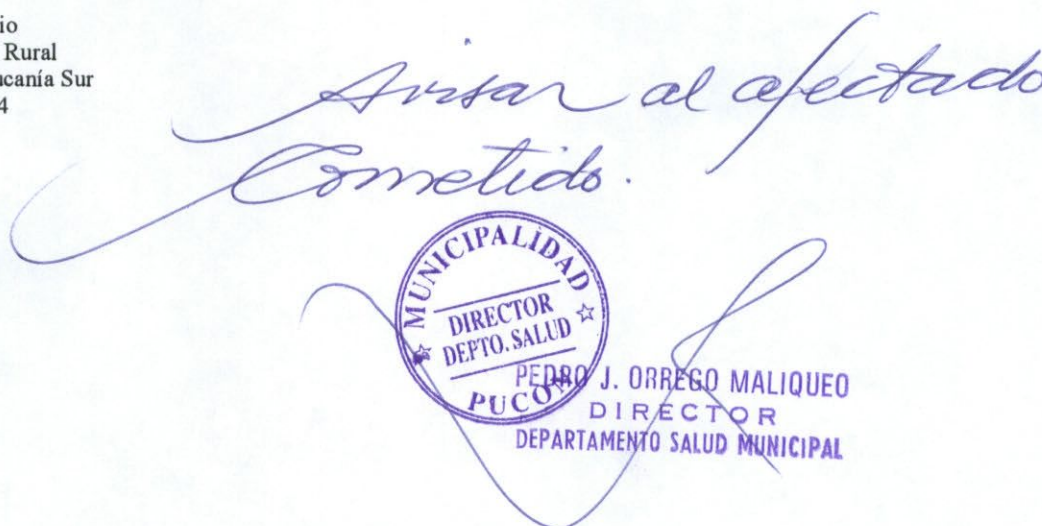 io
Rural
ucanía Sur
4
Avisar al afectado
Cometido.
MUNICIPALIDAD
DIRECTOR
DEPTO. SALUD
PUCON
PEDRO J. ORREGO MALIQUEO
DIRECTOR
DEPARTAMENTO SALUD MUNICIPAL